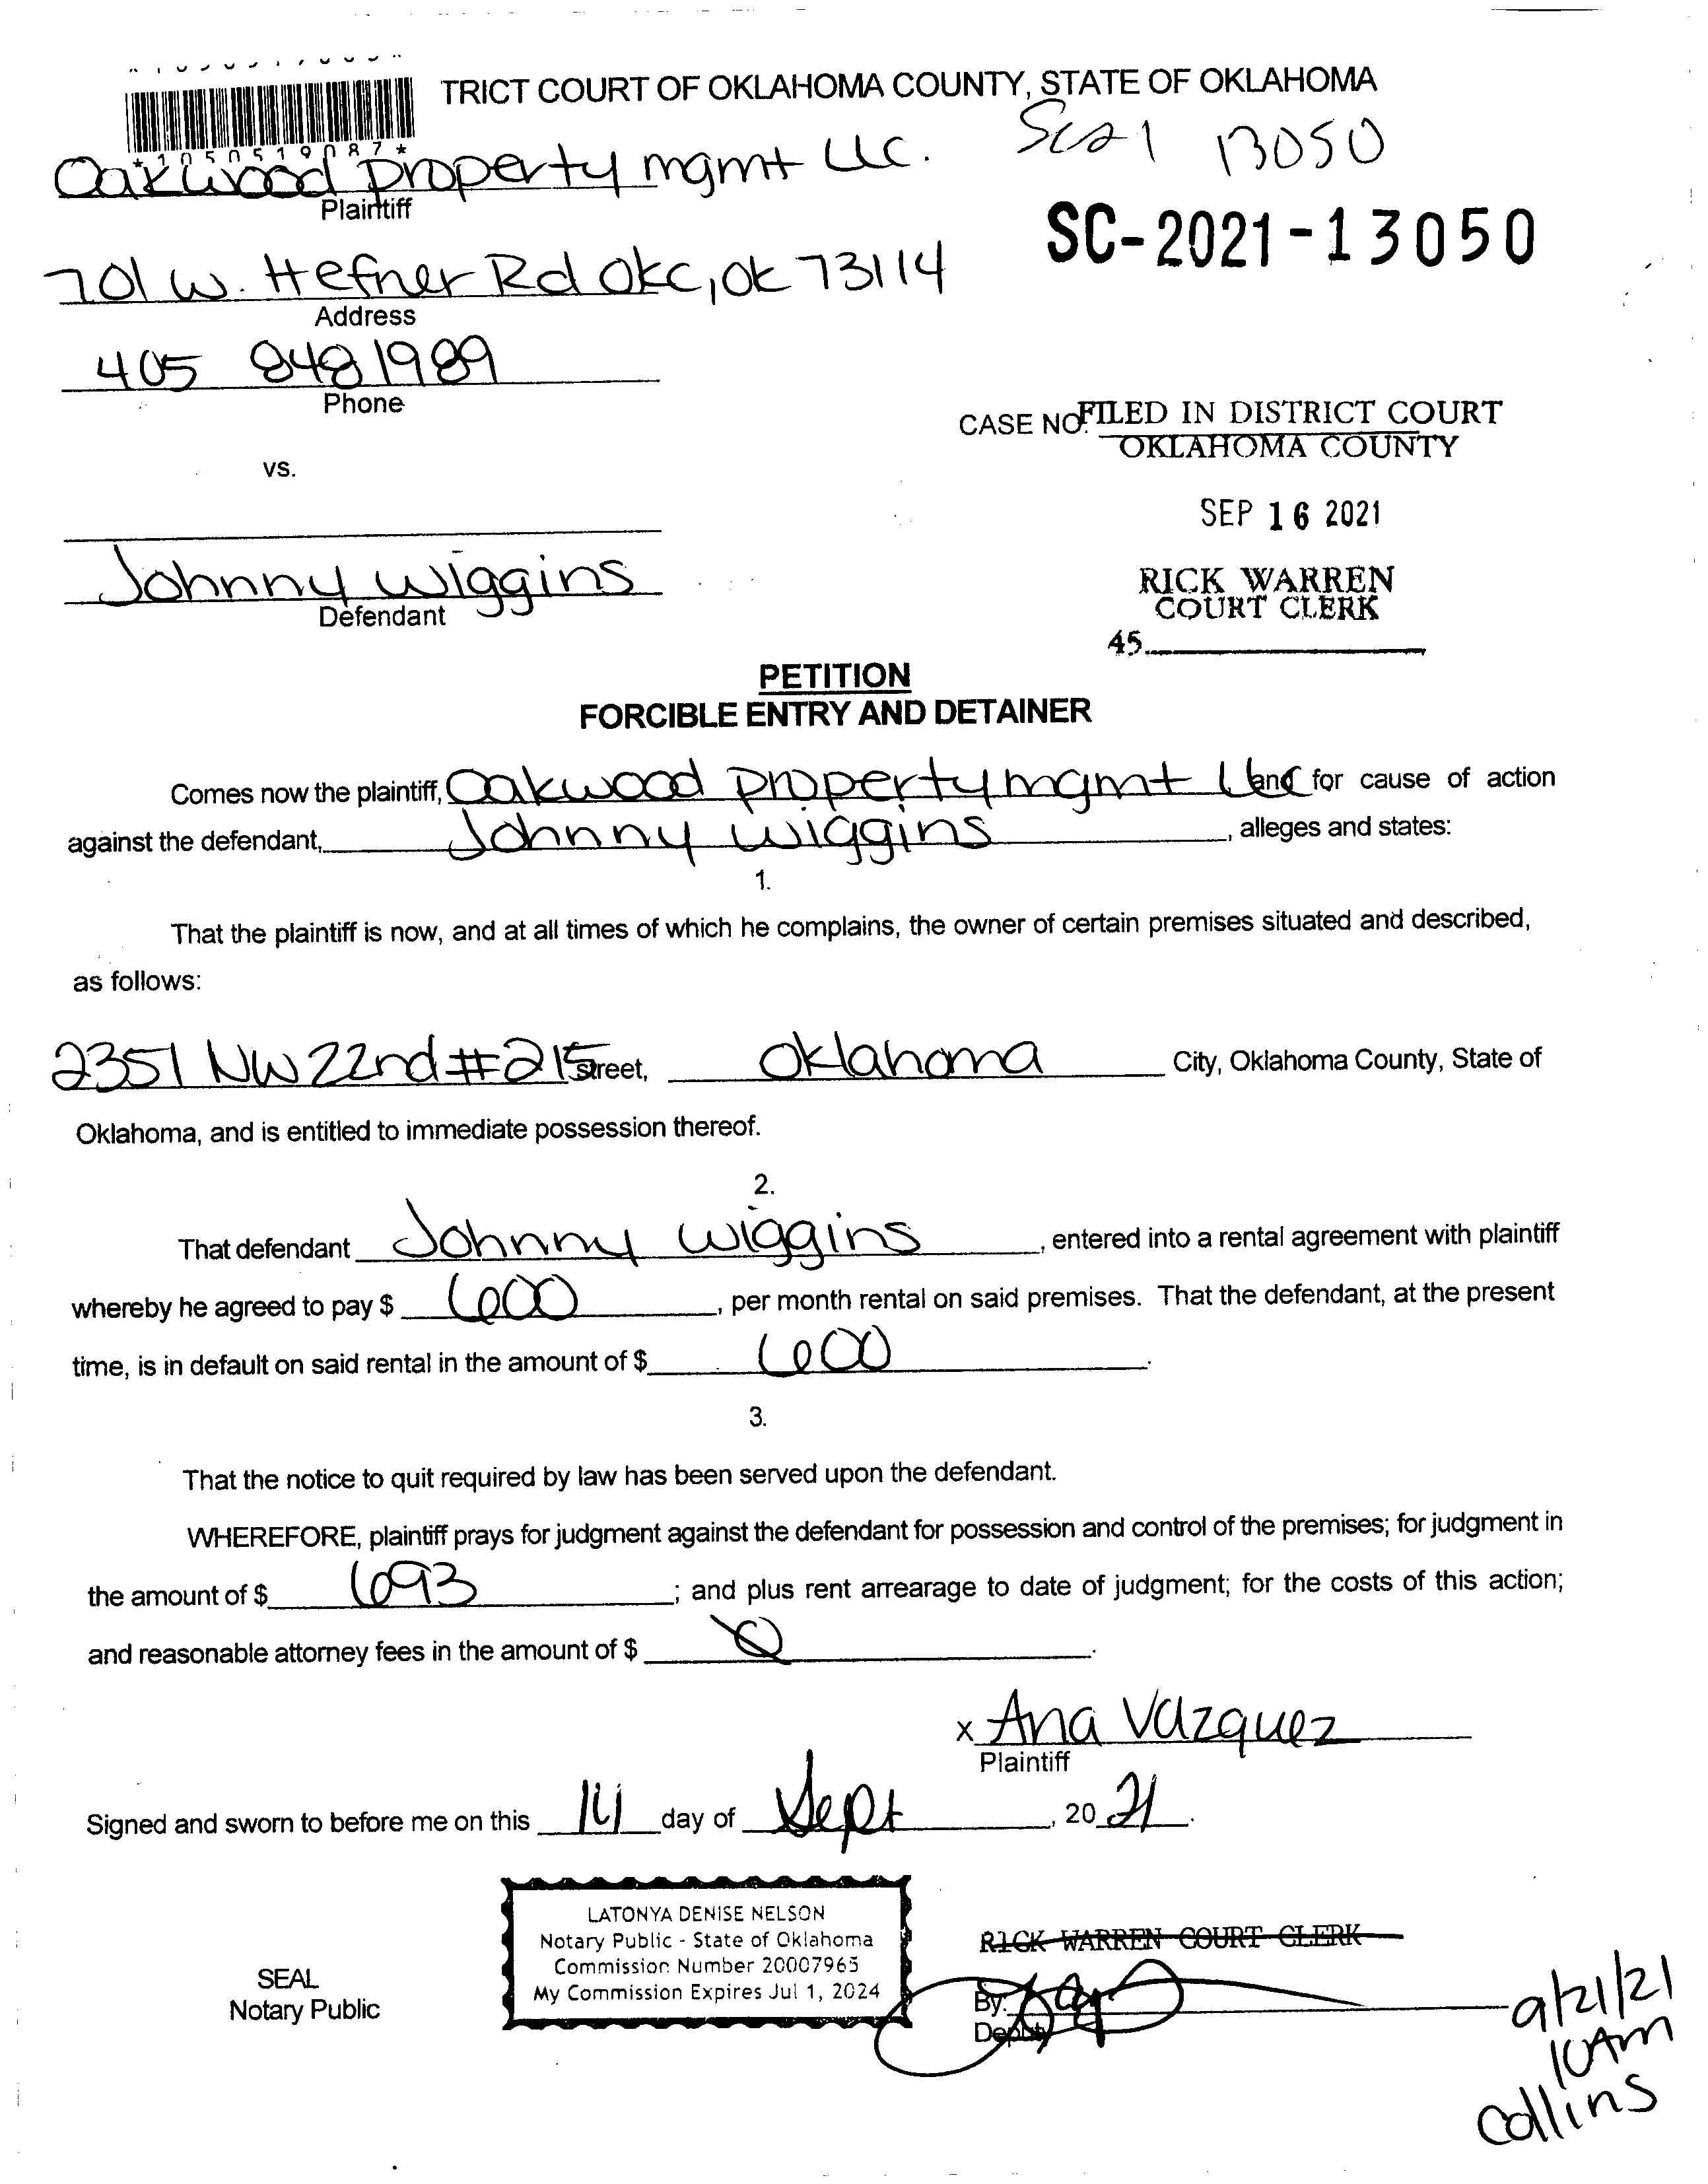 TRICT COURT OF OKLAHOMA COUNTY, STATE OF OKLAHOMA
*1050519087*
SC21 13050
Oakwood property mgmt LLC.
Plaintiff
SC-2021-13050
701 W. Hefner Rd OKC, OK 73114
Address
405 848 1989
Phone
CASE NO.
FILED IN DISTRICT COURT
OKLAHOMA COUNTY
vs.
SEP 16 2021
Johnny Wiggins
Defendant
RICK WARREN
COURT CLERK
45
PETITION
FORCIBLE ENTRY AND DETAINER
Comes now the plaintiff, Oakwood property mgmt LLC and for cause of action
against the defendant, Johnny Wiggins, alleges and states:
1.
That the plaintiff is now, and at all times of which he complains, the owner of certain premises situated and described,
as follows:
2351 NW 22nd #215 Street, Oklahoma City, Oklahoma County, State of
Oklahoma, and is entitled to immediate possession thereof.
2.
That defendant Johnny Wiggins, entered into a rental agreement with plaintiff
whereby he agreed to pay $ 600, per month rental on said premises. That the defendant, at the present
time, is in default on said rental in the amount of $ 600.
3.
That the notice to quit required by law has been served upon the defendant.
WHEREFORE, plaintiff prays for judgment against the defendant for possession and control of the premises; for judgment in
the amount of $ 693; and plus rent arrearage to date of judgment; for the costs of this action;
and reasonable attorney fees in the amount of $ 0.
x Ana Vazquez
Plaintiff
Signed and sworn to before me on this 14 day of Sept, 20 21.
LATONYA DENISE NELSON
Notary Public - State of Oklahoma
Commission Number 20007963
My Commission Expires Jul 1, 2024
SEAL
Notary Public
RICK WARREN COURT CLERK
By:
Deputy
9/21/21
10Am
Collins